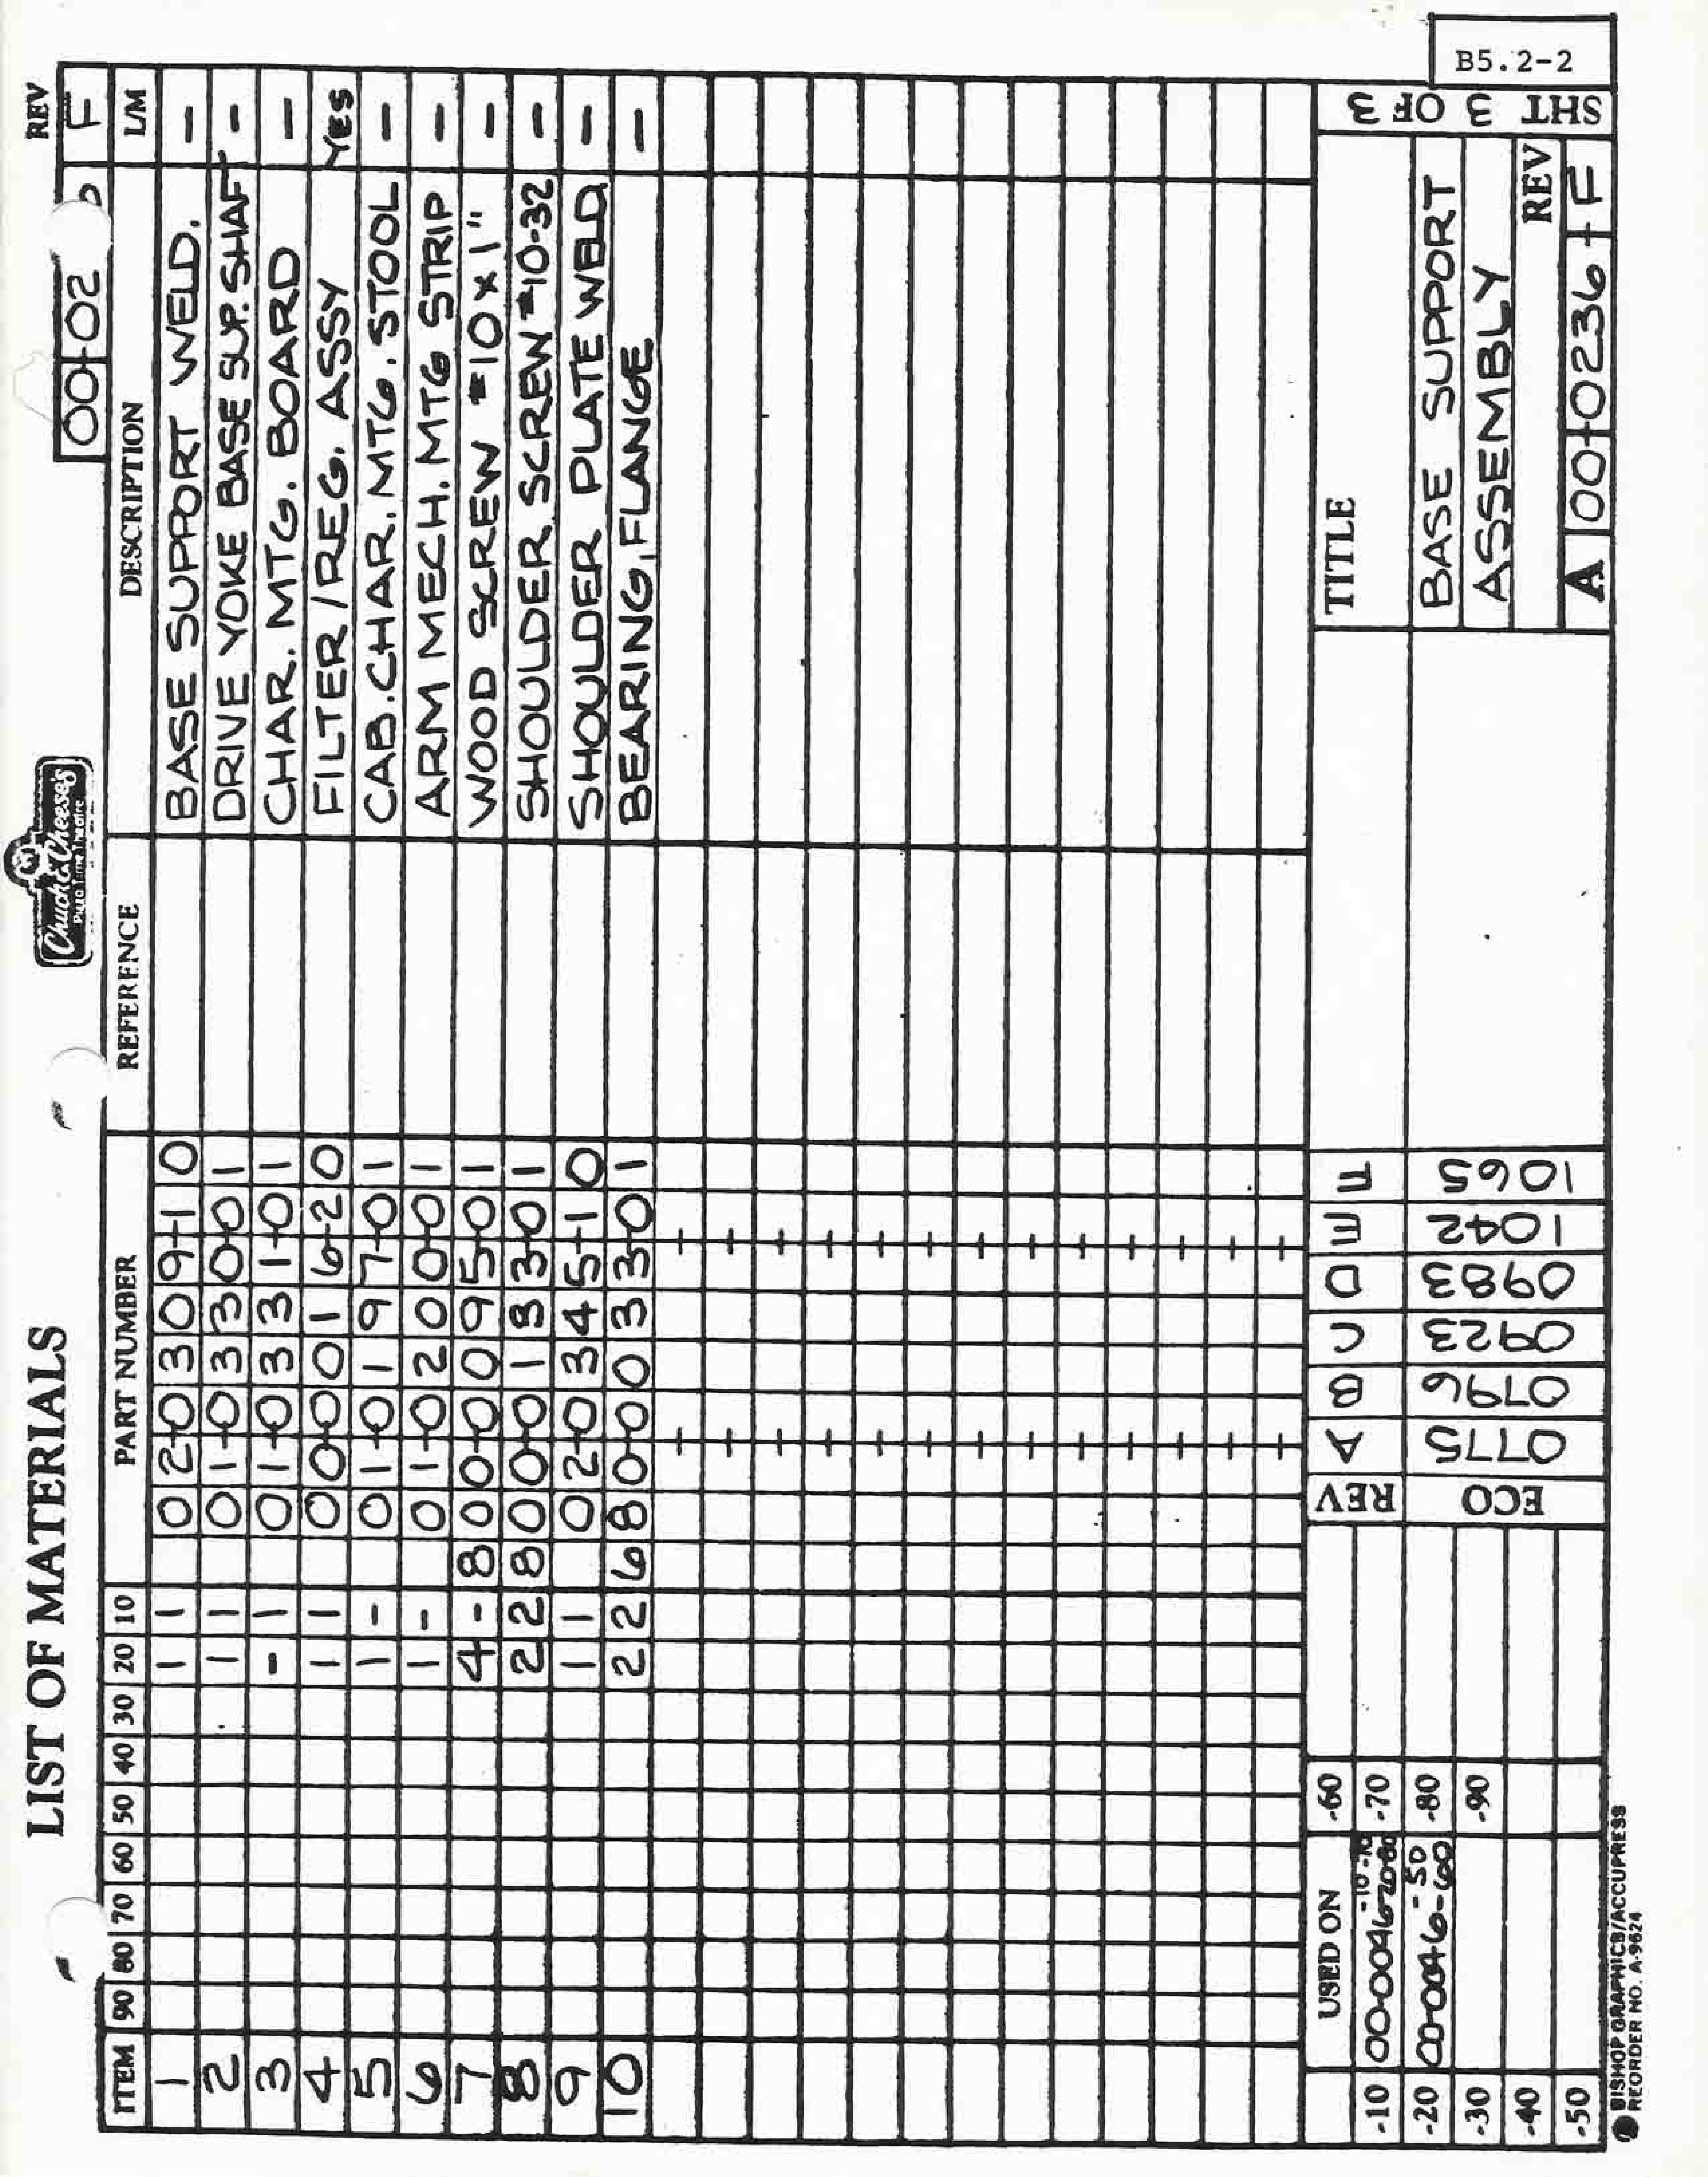 LIST OF MATERIALS
Chuck E. Cheese's
Pizza Time Theatre
00-02
REV
F
ITEM 90 80 70 60 50 40 30 20 10 PART NUMBER REFERENCE DESCRIPTION L/M
1 1 1 02-0309-10 BASE SUPPORT WELD. -
2 1 1 01-0330-01 DRIVE YOKE BASE SUP. SHAFT -
3 - 1 01-0331-01 CHAR. MTG. BOARD -
4 1 1 00-0016-20 FILTER/REG. ASSY YES
5 1 - 01-0197-01 CAB. CHAR. MTG. STOOL -
6 1 - 01-0200-01 ARM MECH. MTG STRIP -
7 4 - 800-0095-01 WOOD SCREW #10 X 1" -
8 2 2 800-0133-01 SHOULDER SCREW #10-32 -
9 1 1 02-0345-10 SHOULDER PLATE WELD -
10 2 2 680-0033-01 BEARING, FLANGE -
USED ON
-10 00-0046
-20 00-0046 -50 -60
-30
-40
-50
-60
-70
-80
-90
REV A B C D E F
ECO 0775 0796 0923 0983 1042 1065
TITLE
BASE SUPPORT
ASSEMBLY
REV
A 00-0236-F
SHT 3 OF 3
B5.2-2
BISHOP GRAPHICS/ACCUPRESS
REORDER NO. A-9624